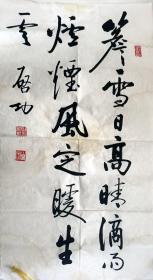 簷雪日高晴滴雨
爐煙風定暖生
雲 啟功